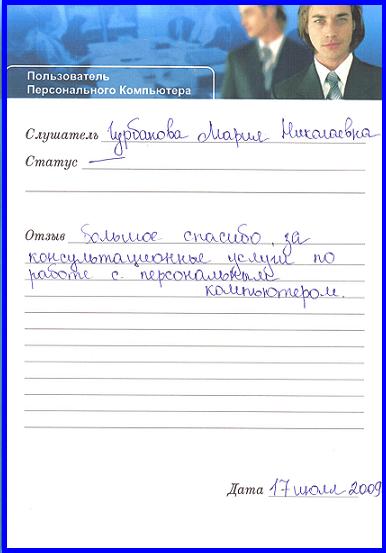 Пользователь
Персонального Компьютера
Слушатель Чурбанова Мария Николаевна
Статус —
Отзыв Большое спасибо, за
консультационные услуги по
работе с персональным
компьютером.
Дата 17 июля 2009